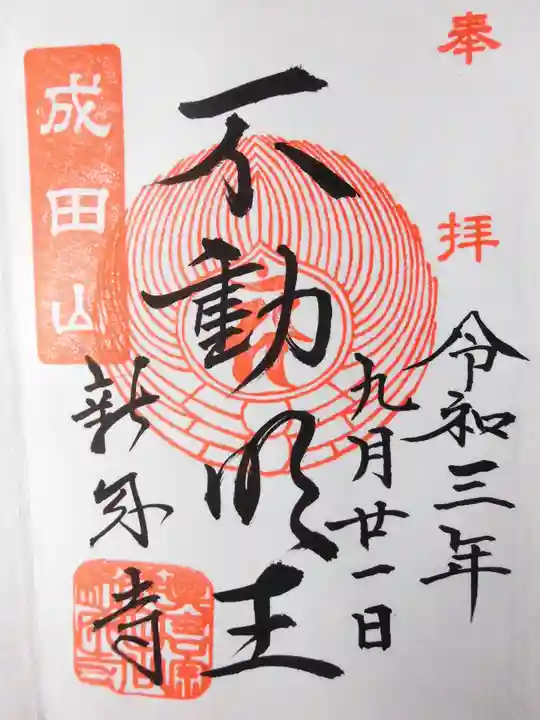 奉拝
令和三年
九月廿一日
不動明王
成田山
新勝寺